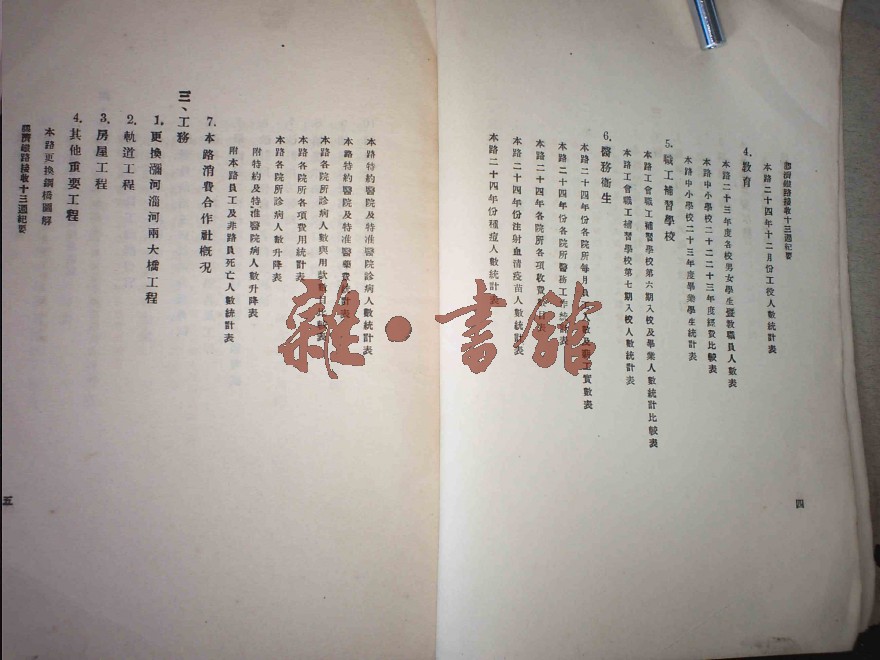 膠濟鐵路接收十三週紀要
本路二十四年十二月份工役人數統計表
4. 教育
本路二十三年度各校男女學生暨教職員人數表
本路中小學校二十二二十三年度經費比較表
本路中小學校二十三年度畢業學生統計表
5. 職工補習學校
本路工會職工補習學校第六期入校及畢業人數統計比較表
本路工會職工補習學校第七期入校人數統計表
6. 醫務衛生
本路二十四年份各院所每月員工人數及工實數表
本路二十四年份各院所醫務工作統計表
本路二十四年各院所各項收費表
本路二十四年份注射血清疫苗人數統計表
本路二十四年份種痘人數統計表
四
本路特約醫院及特准醫院診病人數統計表
本路特約醫院及特准醫藥費統計表
本路各院所診病人數與用款數目比較表
本路各院所各項費用統計表
本路各院所診病人數升降表
附特約及特准醫院病人數升降表
附本路員工及非路員死亡人數統計表
7. 本路消費合作社概況
三、工務
1. 更換瀰河淄河兩大橋工程
2. 軌道工程
3. 房屋工程
4. 其他重要工程
本路更換鋼橋圖解
膠濟鐵路接收十三週紀要
五
雜·書館